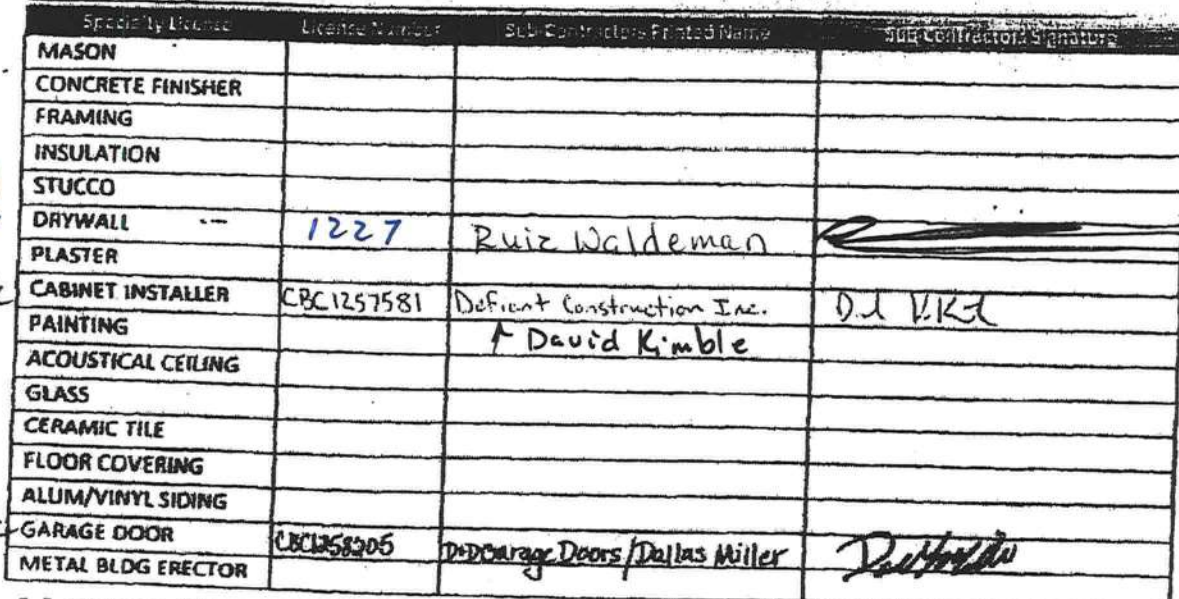 Specialty License License Number Sub-Contractors Printed Name Sub Contractors Signature
MASON
CONCRETE FINISHER
FRAMING
INSULATION
STUCCO
DRYWALL 1227 Ruiz Waldeman
PLASTER
CABINET INSTALLER CBC1257581 Defiant Construction Inc.
PAINTING ↑ David Kimble
ACOUSTICAL CEILING
GLASS
CERAMIC TILE
FLOOR COVERING
ALUM/VINYL SIDING
GARAGE DOOR CBC1258205 D+D Garage Doors/Dallas Miller
METAL BLDG ERECTOR